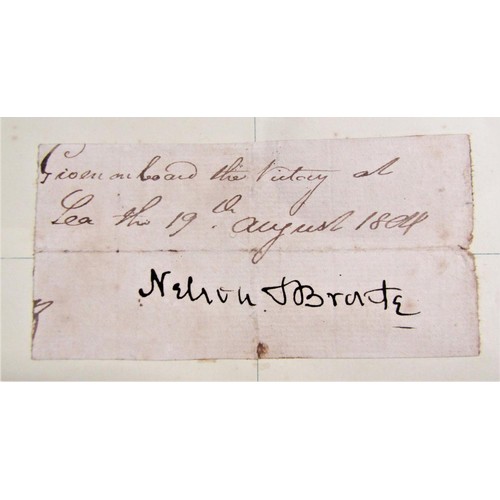 Given on board the Victory at
Sea the 19th August 1804
Nelson & Bronte